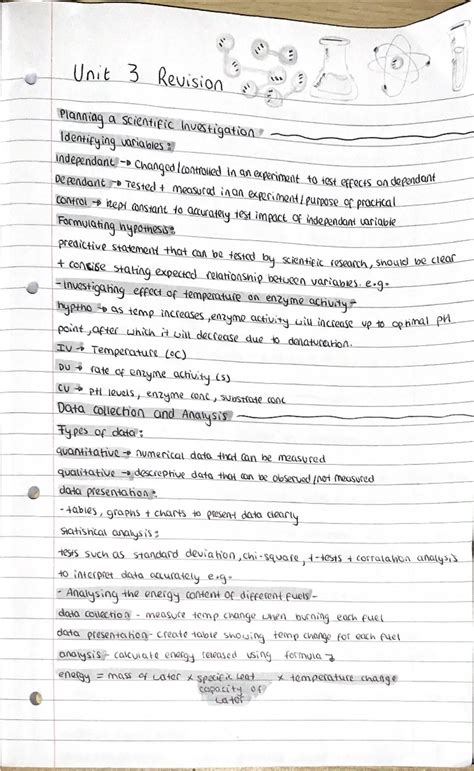 Unit 3 Revision
Planning a Scientific Investigation
Identifying variables:
Independant → Changed/controlled in an experiment to test effects on dependant
Dependant → Tested + measured in an experiment/purpose of practical
control → kept constant to accurately test impact of independant variable
Formulating hypothesis:
predictive statement that can be tested by scientific research, should be clear
+ concise stating expected relationship between variables. e.g.
-Investigating effect of temperature on enzyme activity-
hyptho → as temp increases, enzyme activity will increase up to optimal pH
point, after which it will decrease due to denaturation.
IV → Temperature (oC)
DV → rate of enzyme activity (s)
CV → pH levels, enzyme conc, substrate conc
Data collection and Analysis
Types of data:
quantitative → numerical data that can be measured
qualitative → descreptive data that can be observed/not measured
data presentation:
-tables, graphs + charts to present data clearly
statistical analysis:
tests such as standard deviation, chi-square, t-tests + corralation analysis
to interpret data accurately e.g.
- Analysing the energy content of different fuels -
data collection - measure temp change when burning each fuel
data presentation- create table showing temp change for each fuel
analysis - calculate energy released using formula →
energy = mass of water x specific heat x temperature change
capacity of
water